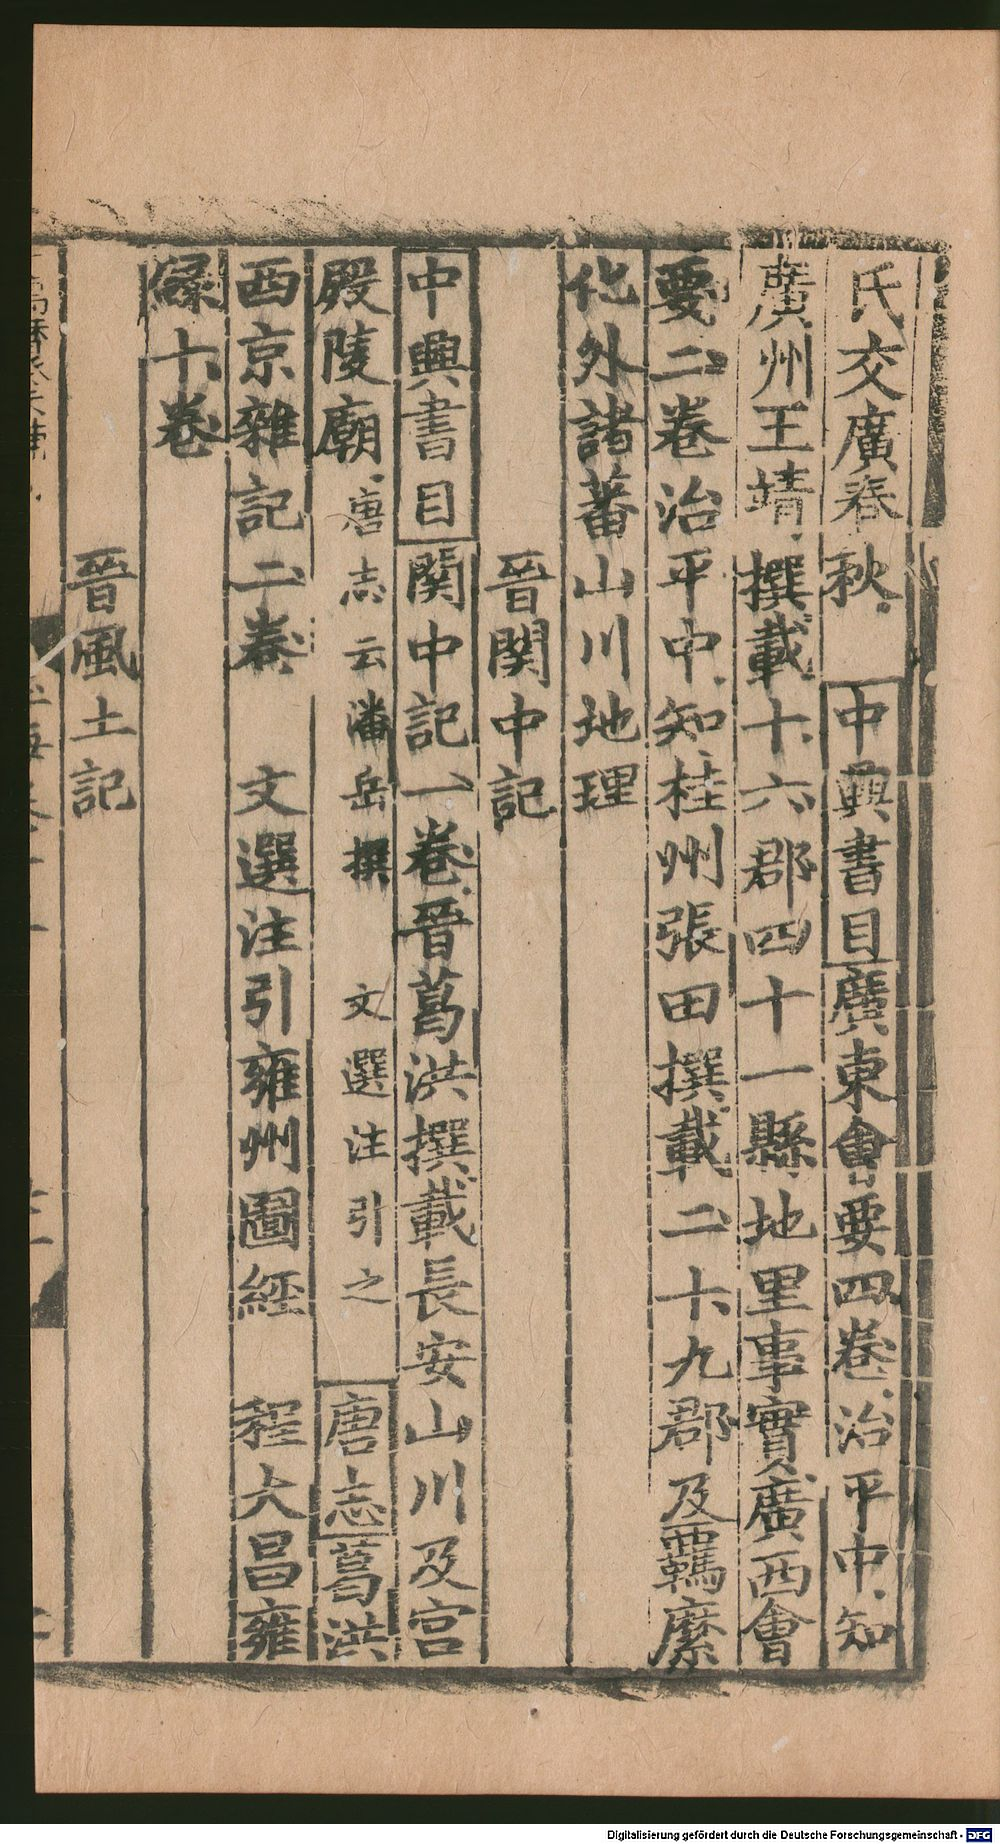 氏交廣春秋 中興書目廣東會要四卷治平中知
廣州王靖撰載十六郡四十一縣地里事實廣西會
要二卷治平中知桂州張田撰載二十九郡及羈縻
化外諸蕃山川地理
晉関中記
中興書目関中記一卷晉葛洪撰載長安山川及宮
殿陵廟唐志云潘岳撰 文選注引之 唐志葛洪
西京雜記二卷 文選注引雍州圖經 程大昌雍
錄十卷
晉風土記
Digitalisierung gefördert durch die Deutsche Forschungsgemeinschaft - DFG